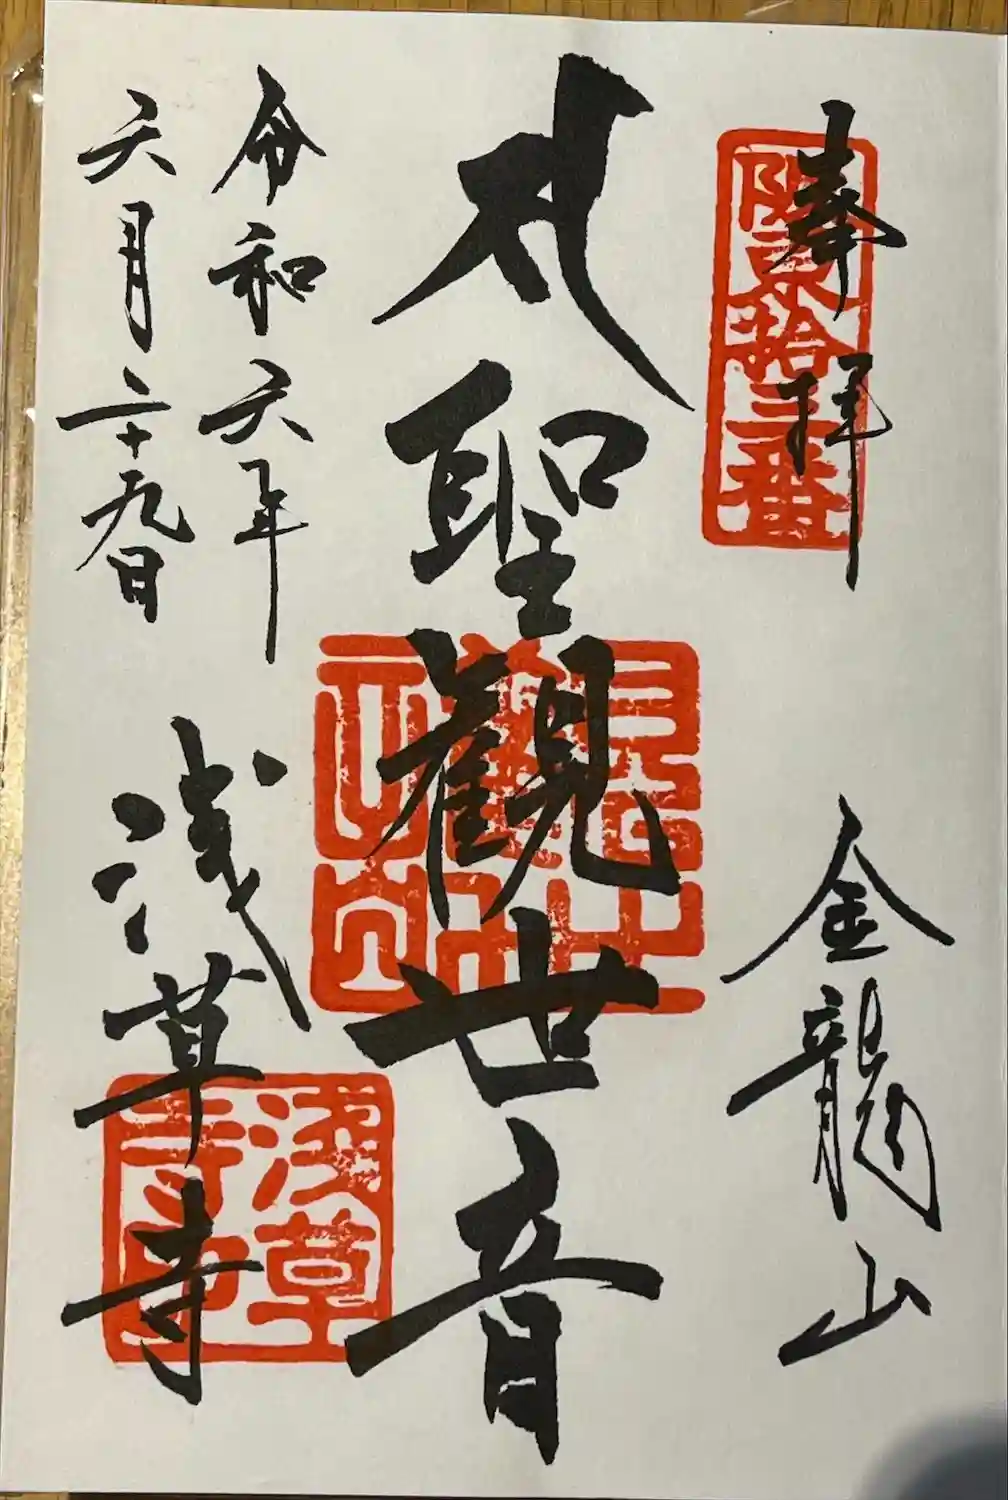 奉拝
坂東拾三番
金龍山
聖觀世音
令和六年
六月二十九日
浅草寺
浅草寺印